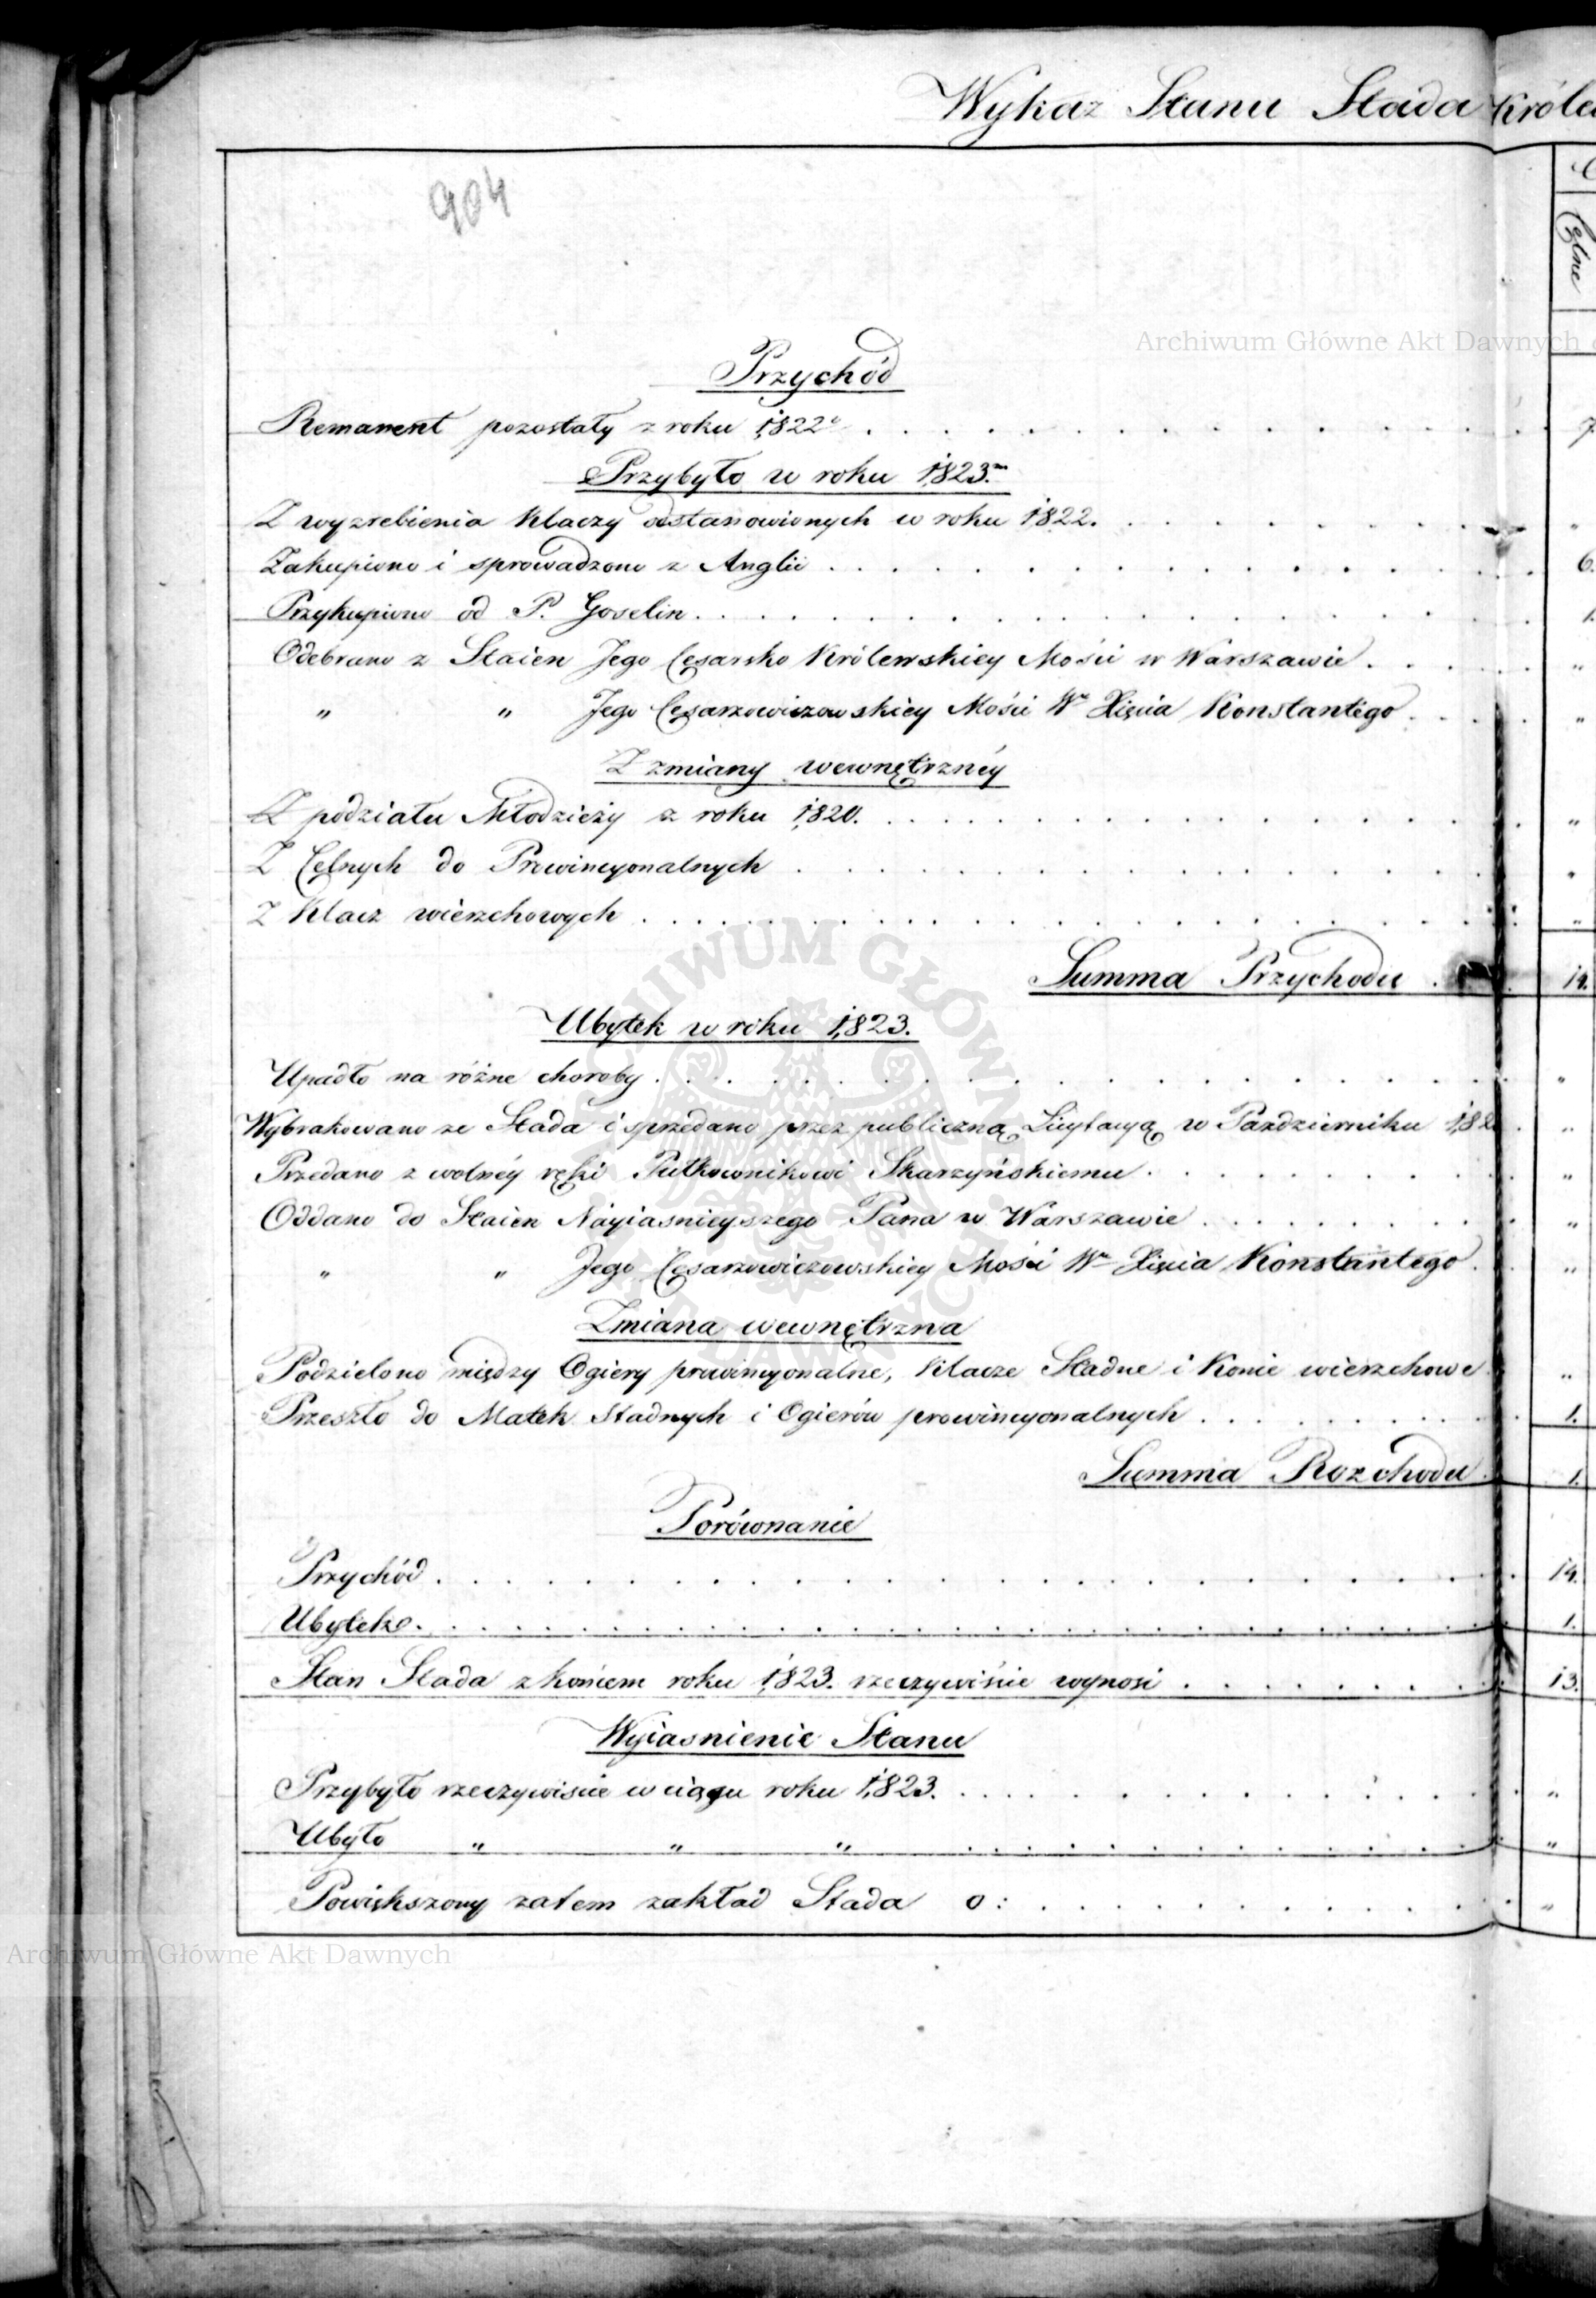 Wykaz Stanu Stada Króle
904
Celne
Przychód
Remanent pozostały z roku 1822º . . . 7
Przybyło w roku 1823.m
Z wyzrebienia Klaczy odstanowionych w roku 1822. . . . "
Zakupiono i sprowadzono z Anglii . . . 6.
Przykupiono od P. Goselin . . . 1.
Odebrano z Staien Jego Cesarsko Królewskiey Mości w Warszawie . . . "
" " Jego Cesarzowiczowskiey Mości Wº Xięcia Konstantego . . . "
Z zmiany wewnętrznéy
Z podziału Młodzieży z roku 1820. . . . "
Z Celnych do Prowincyonalnych . . . "
Z Klacz wierzchowych . . . "
Summa Przychodu . 14.
Ubytek w roku 1823.
Upadło na różne choroby . . . "
Wybrakowano ze Stada i sprzedano przez publiczną Licytacyą w Pazdzierniku 182 . "
Przedano z wolnéy ręki Pułkownikowi Skarzyńskiemu . . . "
Oddano do Staien Nayiasnieyszego Pana w Warszawie . . . "
" " Jego Cesarzowiczowskiey Mości Wº Xięcia Konstantego . . "
Zmiana wewnętrzna
Podzielono między Ogiery prowincyonalne, Klacze Stadne i Konie wierzchowe "
Przeszło do Matek Stadnych i Ogierów prowincyonalnych . . . 1.
Summa Rozchodu . 1.
Porównanie
Przychód . . . 14.
Ubytek . . . 1.
Stan Stada z końcem roku 1823. rzeczywiście wynosi . . . 13.
Wyiasnienie Stanu
Przybyło rzeczywiscie w ciągu roku 1823. . . . "
Ubyło " " " . . . "
Powiększony zatem zakład Stada o : . . . "
Archiwum Główne Akt Dawnych
Archiwum Główne Akt Dawnych